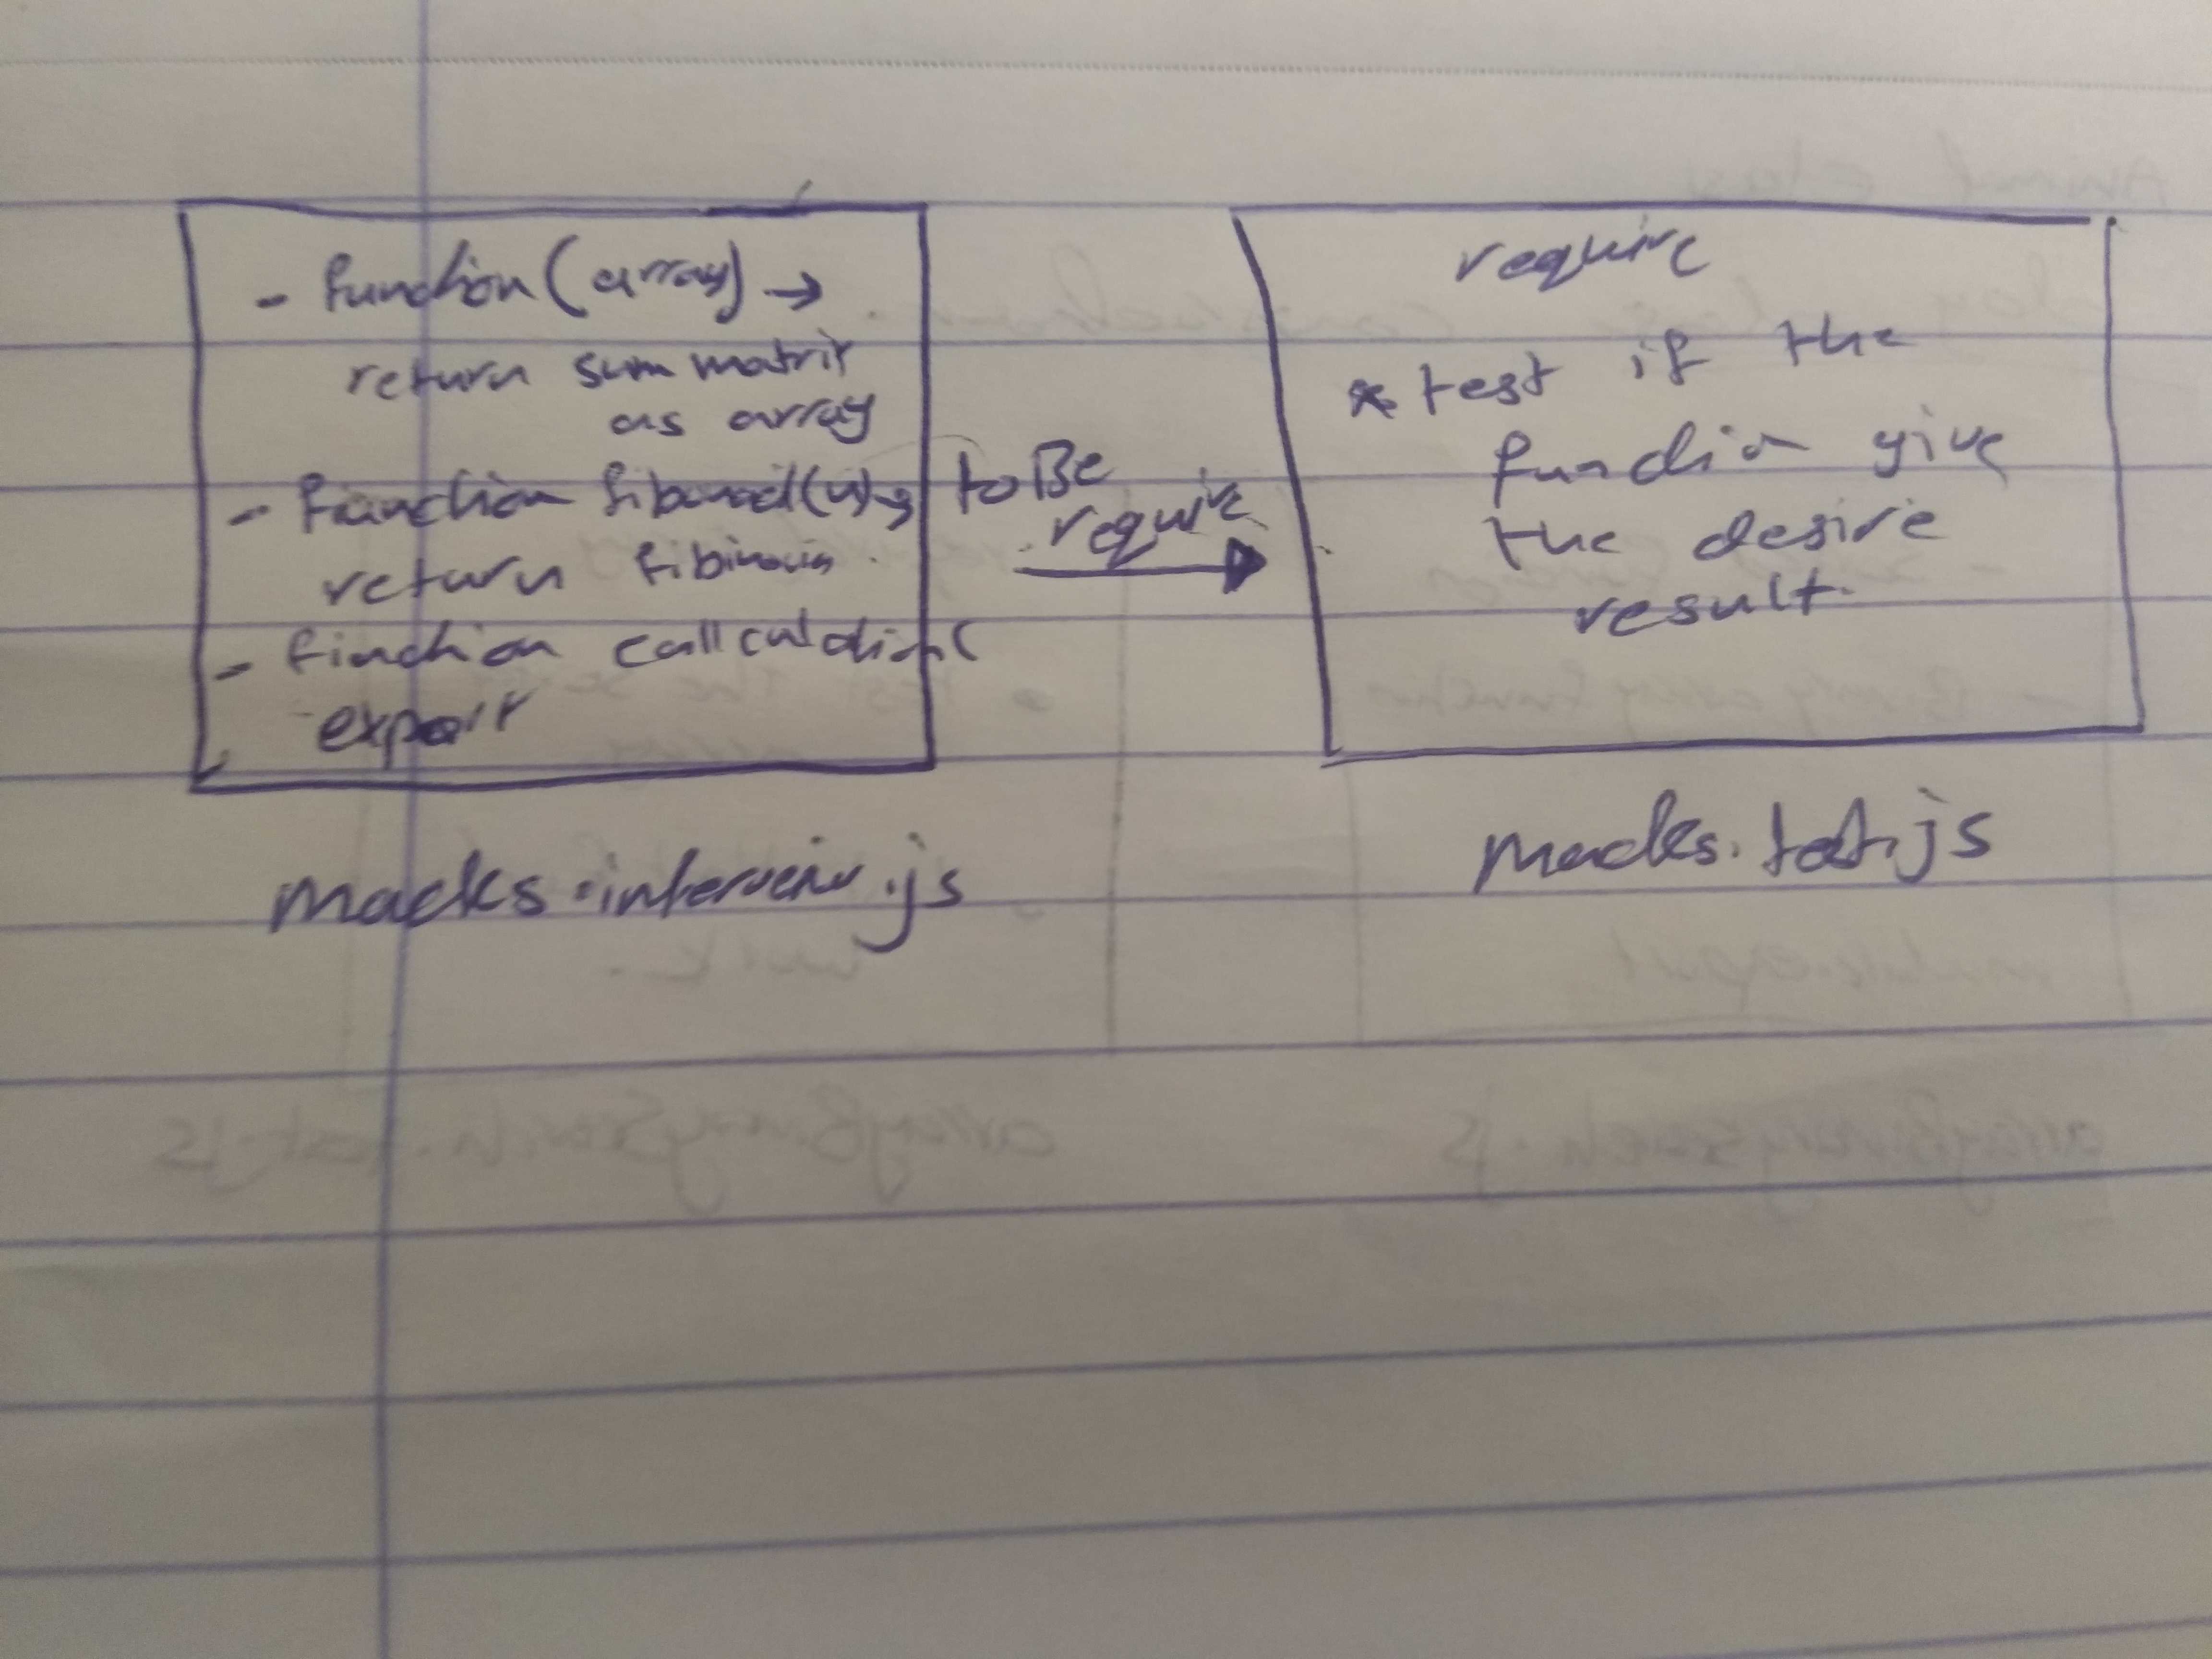 - function (array) →
return sum matrix
as array
- function fibonaci(n) →
return
- function callculation(
export
to Be
require
require
* test if the
function give
the desire
result.
macks.interveiw.js
macks.test.js